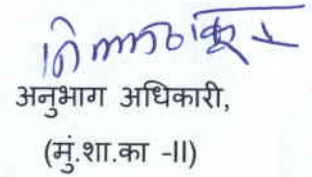 अनुभाग अधिकारी,
(मुं.शा.का -II)